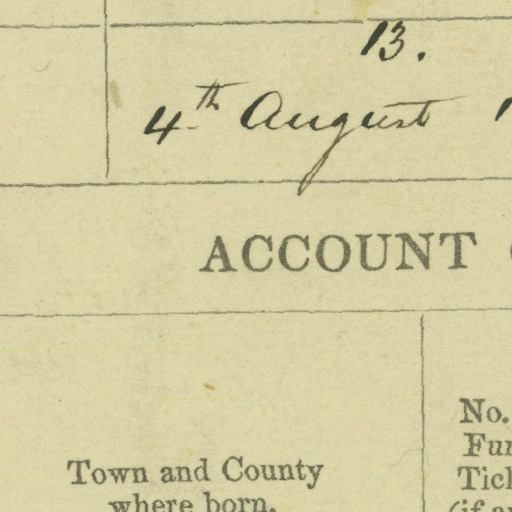 13.
4th August
ACCOUNT
Town and County
where born.
No.